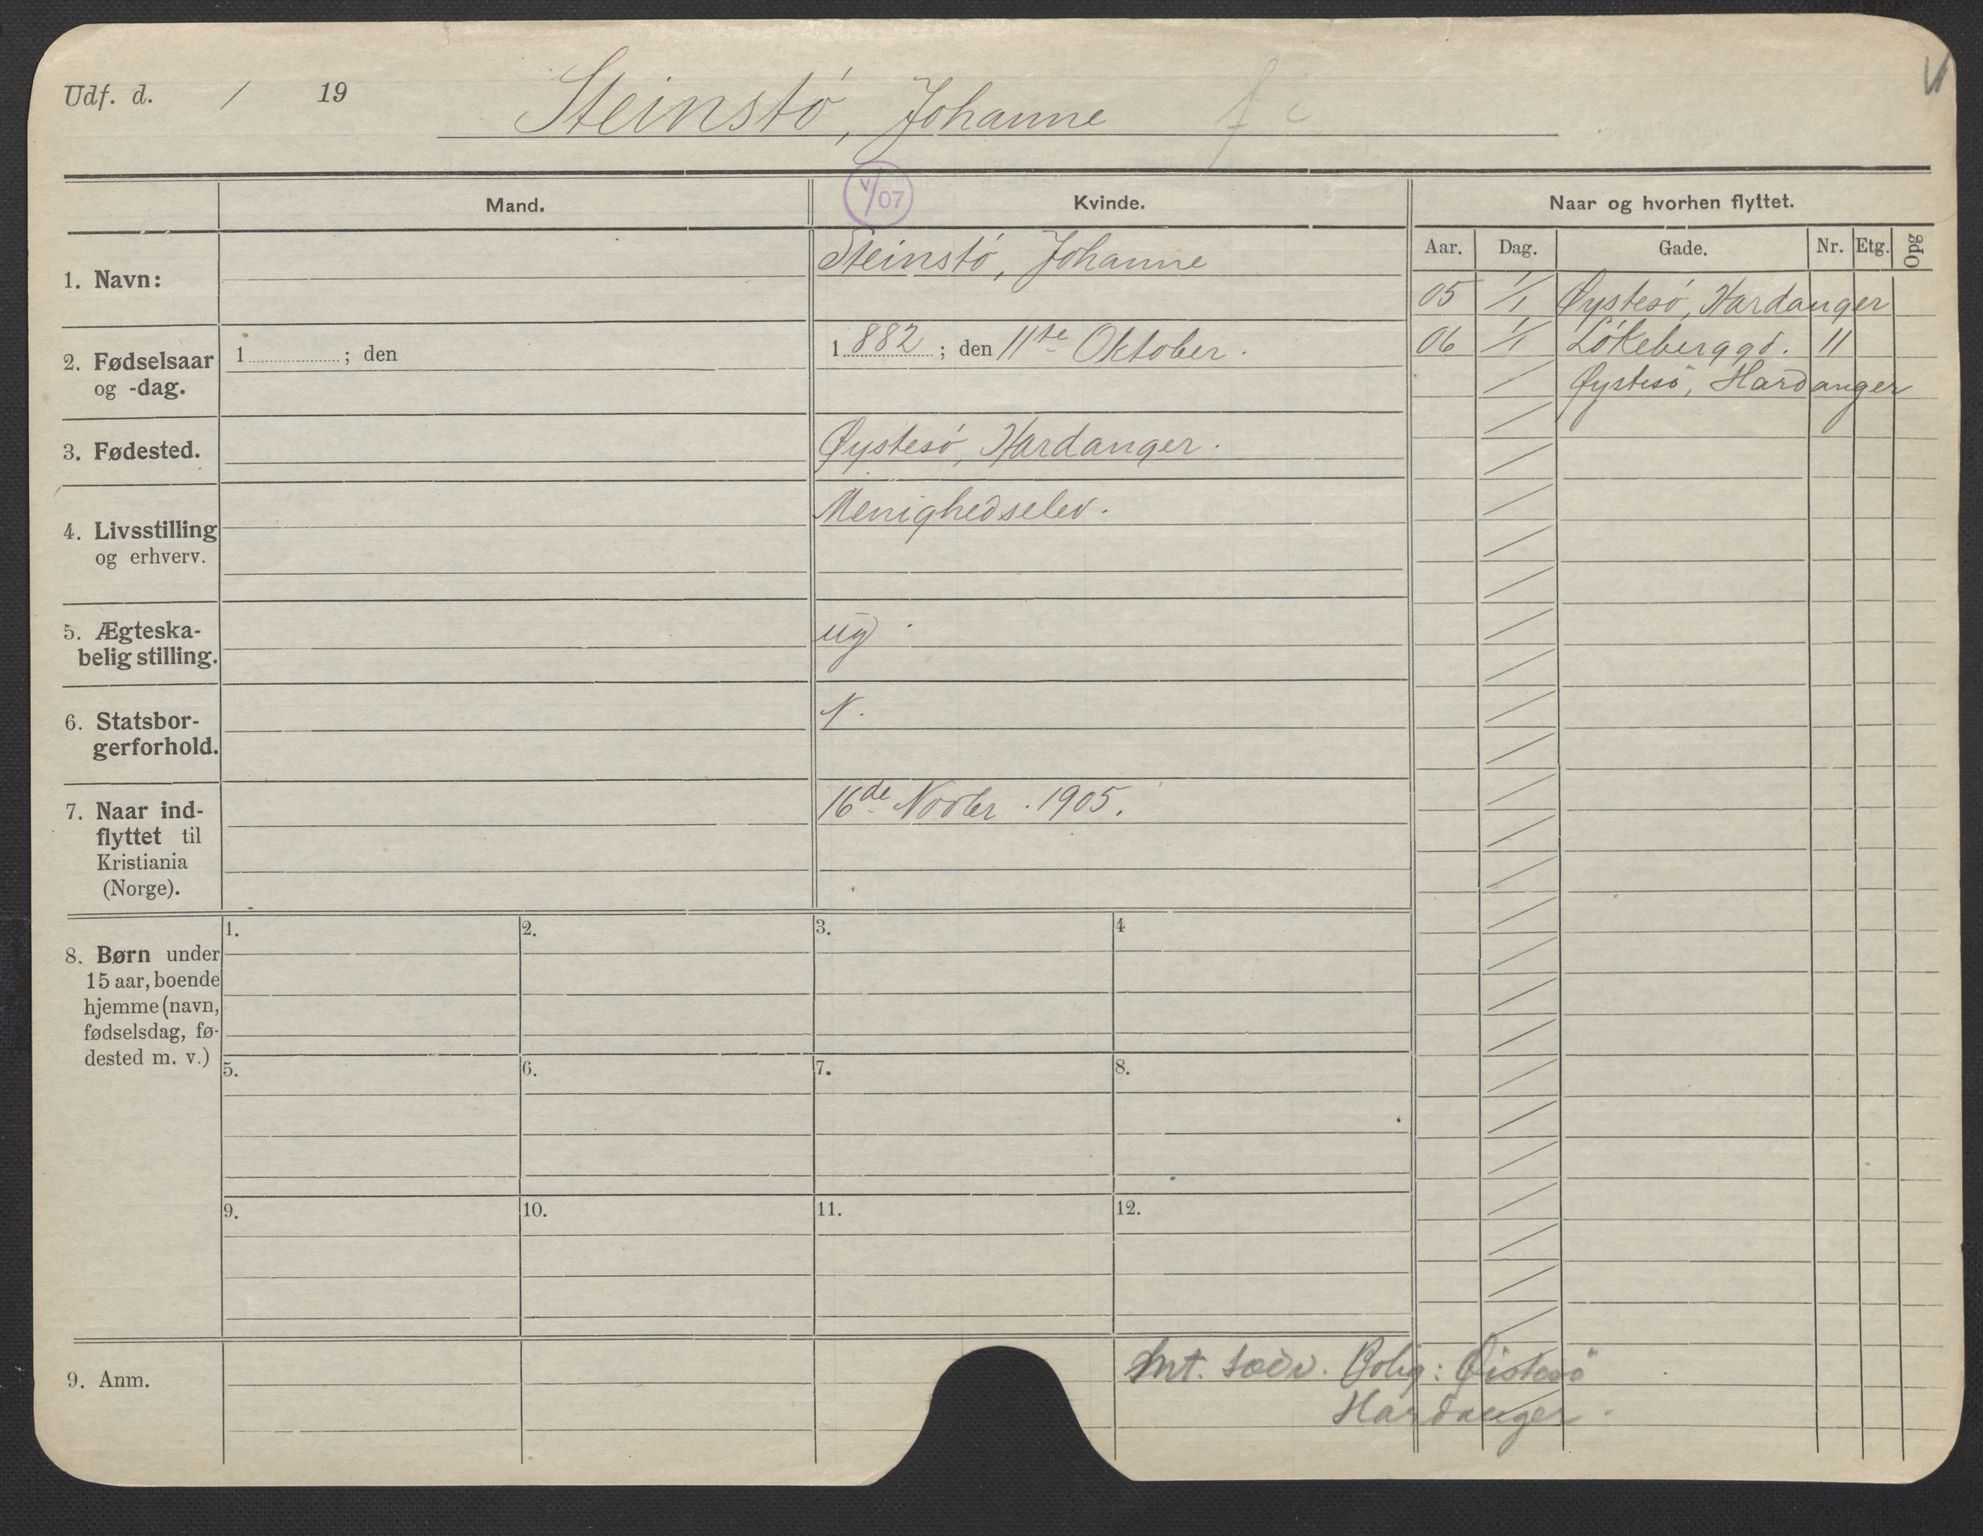 Udf. d. / 19
Steinstø, Johanne
V/07
Mand.
Kvinde.
Naar og hvorhen flyttet.
Aar. Dag. Gade. Nr. Etg. Opg
1. Navn:
Steinstø, Johanne
05 1/1 Øystesø, Hardanger
2. Fødselsaar
og -dag.
1 ; den
1882 ; den 11te Oktober.
06 1/1 Løkeberggd. 11
Øystesø, Hardanger
3. Fødested.
Øystesø, Hardanger.
4. Livsstilling
og erhverv.
Menighedselev.
5. Ægteska-
belig stilling.
ug.
6. Statsbor-
gerforhold.
N.
7. Naar ind-
flyttet til
Kristiania
(Norge).
16de Novbr. 1905.
8. Børn under
15 aar, boende
hjemme (navn,
fødselsdag, fø-
dested m. v.)
1. 2. 3. 4
5. 6. 7. 8.
9. 10. 11. 12.
9. Anm.
Ant. sædv. Bolig: Øistesø
Hardanger.